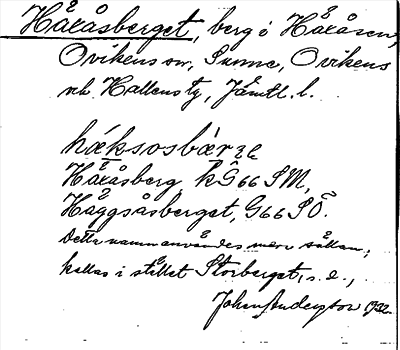 Håxåsberget, berg i Håxåsen,
Ovikens sn, Sunne, Ovikens
och Hallens tg, Jämtl. l.
hǽksosbær̥ɜe
Håxåsberg kG66 SM,
Häggsåsberget, G66 SÖ.
Detta namn användes mera sällan;
kallas i stället Storberget, s.d.,
Johan Anderson 1932.